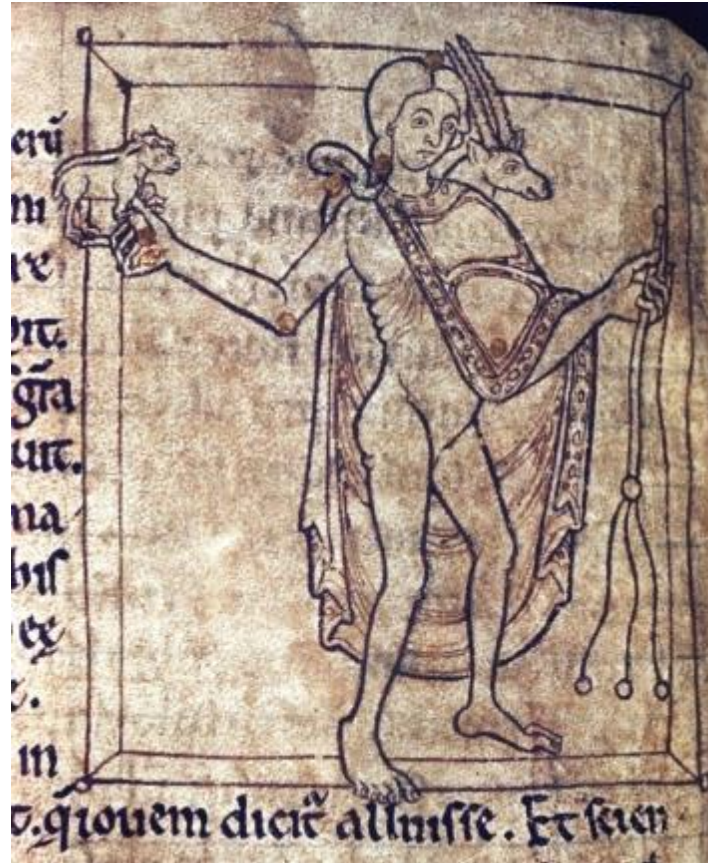 erũ
ni
re
bit.
gr̃a
uit.
ma
bis
ex
e.
in
t. q̃ iouem dicit᷑ alluisse. Et scien